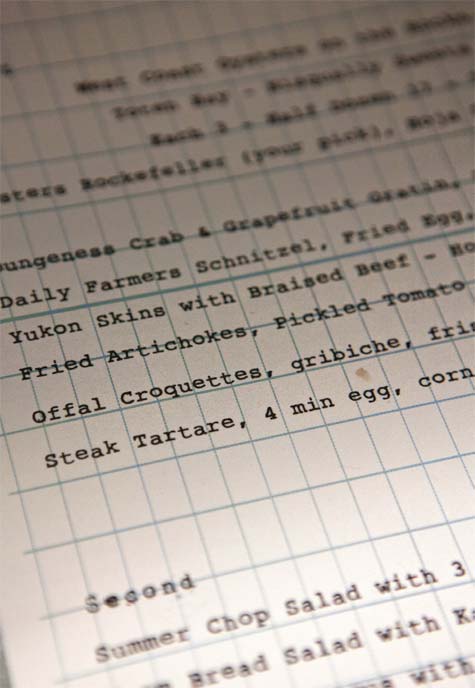 West Coast Oysters on the
Totem Bay - Nisqually
Each 3 - Half Dozen
sters Rockefeller (your pick),
ungeness Crab & Grapefruit Gratin,
Daily Farmers Schnitzel, Fried Egg
Yukon Skins with Braised Beef -
Fried Artichokes, Pickled Tomato
Offal Croquettes, gribiche, fri
Steak Tartare, 4 min egg, corn
Second
Summer Chop Salad with 3
Bread Salad with Ka
with